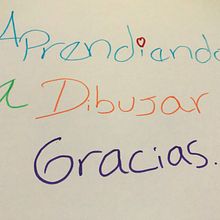 Aprendiendo
a Dibujar
Gracias.